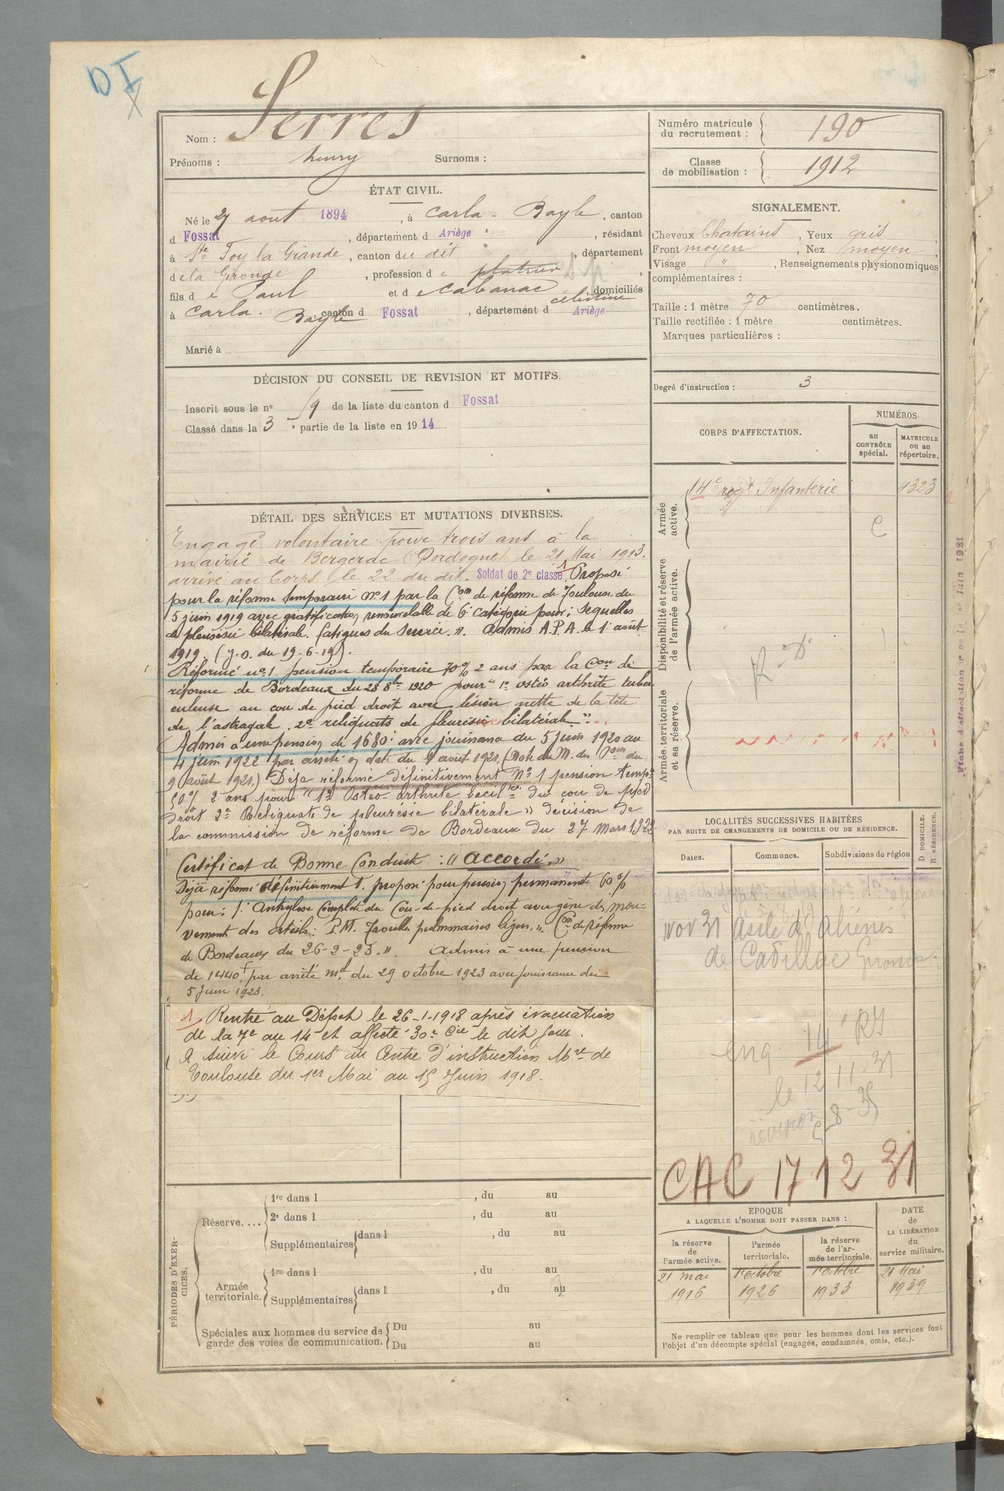 D I
X
Nom : Serres
Prénoms : henry Surnoms :
ÉTAT CIVIL.
Né le 27 aout 1894, à Carla-Bayle, canton
d Fossat, département d Ariège, résidant
à Ste Foy la Grande, canton du dit, département
de la Gironde, profession de platrier
fils de Paul et de Cabanac Célestine, domiciliés
à Carla-Bayle canton d Fossat, département d Ariège
Marié à
DÉCISION DU CONSEIL DE REVISION ET MOTIFS.
Inscrit sous le n° 19 de la liste du canton d Fossat
Classé dans la 3e partie de la liste en 1914
DÉTAIL DES SERVICES ET MUTATIONS DIVERSES.
Engagé volontaire pour trois ans à la
mairie de Bergerac (Dordogne) le 21 Mai 1913.
arrivé au Corps le 22 du dit. Soldat de 2e classe. Proposé
pour la réforme temporaire n°1 par la Con de réforme de Toulouse du
5 juin 1919 avec gratification renouvelable de 6e catégorie pour : Sequelles
de pleurésie bilatérale. fatigues du service ". Admis A.P.A. le 1er août
1919. (J.O. du 19-6-19).
Réformé n°1 pension temporaire 70% 2 ans par la Con de
réforme de Bordeaux du 28 8bre 1920 pour " 1° ostéo arthrite tuber
culeuse au cou de pied droit avec lésion nette de la tête
de l'astragale. 2° reliquats de pleurésie bilatérale ".
Admis à une pension de 1680f avec jouissance du 5 juin 1920 au
4 juin 1922 par arrêté en date du août 1921,
9 août 1921) Déja réformé définitivement N°1 pension temp.
60% 2 ans pour " 1° Ostéo-arthrite bacillre du cou de pied
droit 2° Reliquats de pleurésie bilatérale » décision de
la commission de réforme de Bordeaux du 27 mars 1922
Certificat de Bonne Conduite : « Accordé »
Déjà réformé définitivement 1. proposé pour pension permanente 60%
pour : 1° Ankylose complète du cou-de-pied droit avec gêne des mou-
vements des orteils : P.M. pulmonaires légers. ". Con de Réforme
de Bordeaux du 26-2-23. ". Admis à une pension
de 1440f par arrêté mel du 29 octobre 1923 avec jouissance du
5 juin 1923.
1 Rentré au Dépôt le 26-1-1918 après évacuation
de la 7e au 14e et affecté 30e Cie le dit jour.
A suivi le Cours au Centre d'instruction de
Toulouse du 1er Mai au 15 Juin 1918.
PÉRIODES D'EXERCICES.
Réserve.... 1re dans l , du au
2e dans l , du au
Supplémentaires dans l , du au
Armée territoriale. 1re dans l , du au
Supplémentaires dans l , du au
Spéciales aux hommes du service de Du au
garde des voies de communication. Du au
Numéro matricule du recrutement : 190
Classe de mobilisation : 1912
SIGNALEMENT.
Cheveux Chatains, Yeux gris,
Front moyen, Nez moyen,
Visage ", Renseignements physionomiques
complémentaires :
Taille : 1 mètre 70 centimètres.
Taille rectifiée : 1 mètre centimètres.
Marques particulières :
Degré d'instruction : 3
CORPS D'AFFECTATION.
NUMÉROS
au CONTRÔLE spécial.
MATRICULE ou au répertoire.
Armée active.
14e regt Infanterie 1323
Disponibilité et réserve de l'armée active.
R D
Armée territoriale et sa réserve.
LOCALITÉS SUCCESSIVES HABITÉES
PAR SUITE DE CHANGEMENTS DE DOMICILE OU DE RÉSIDENCE.
Dates. Communes. Subdivisions de région D. DOMICILE. R. RÉSIDENCE.
nov 31 Asile d'aliénés
de Cadillac Gironde
eng. 14e RI
le 12 11 31
révision 5-8-35
CAC 17 12 31
EPOQUE
A LAQUELLE L'HOMME DOIT PASSER DANS :
DATE de LA LIBÉRATION du service militaire.
la réserve de l'armée active.
l'armée territoriale.
la réserve de l'armée territoriale.
21 mai 1916
1er octobre 1926
1er octobre 1933
21 Mai 1939
Ne remplir ce tableau que pour les hommes dont les services font
l'objet d'un décompte spécial (engagés, condamnés, omis, etc.).